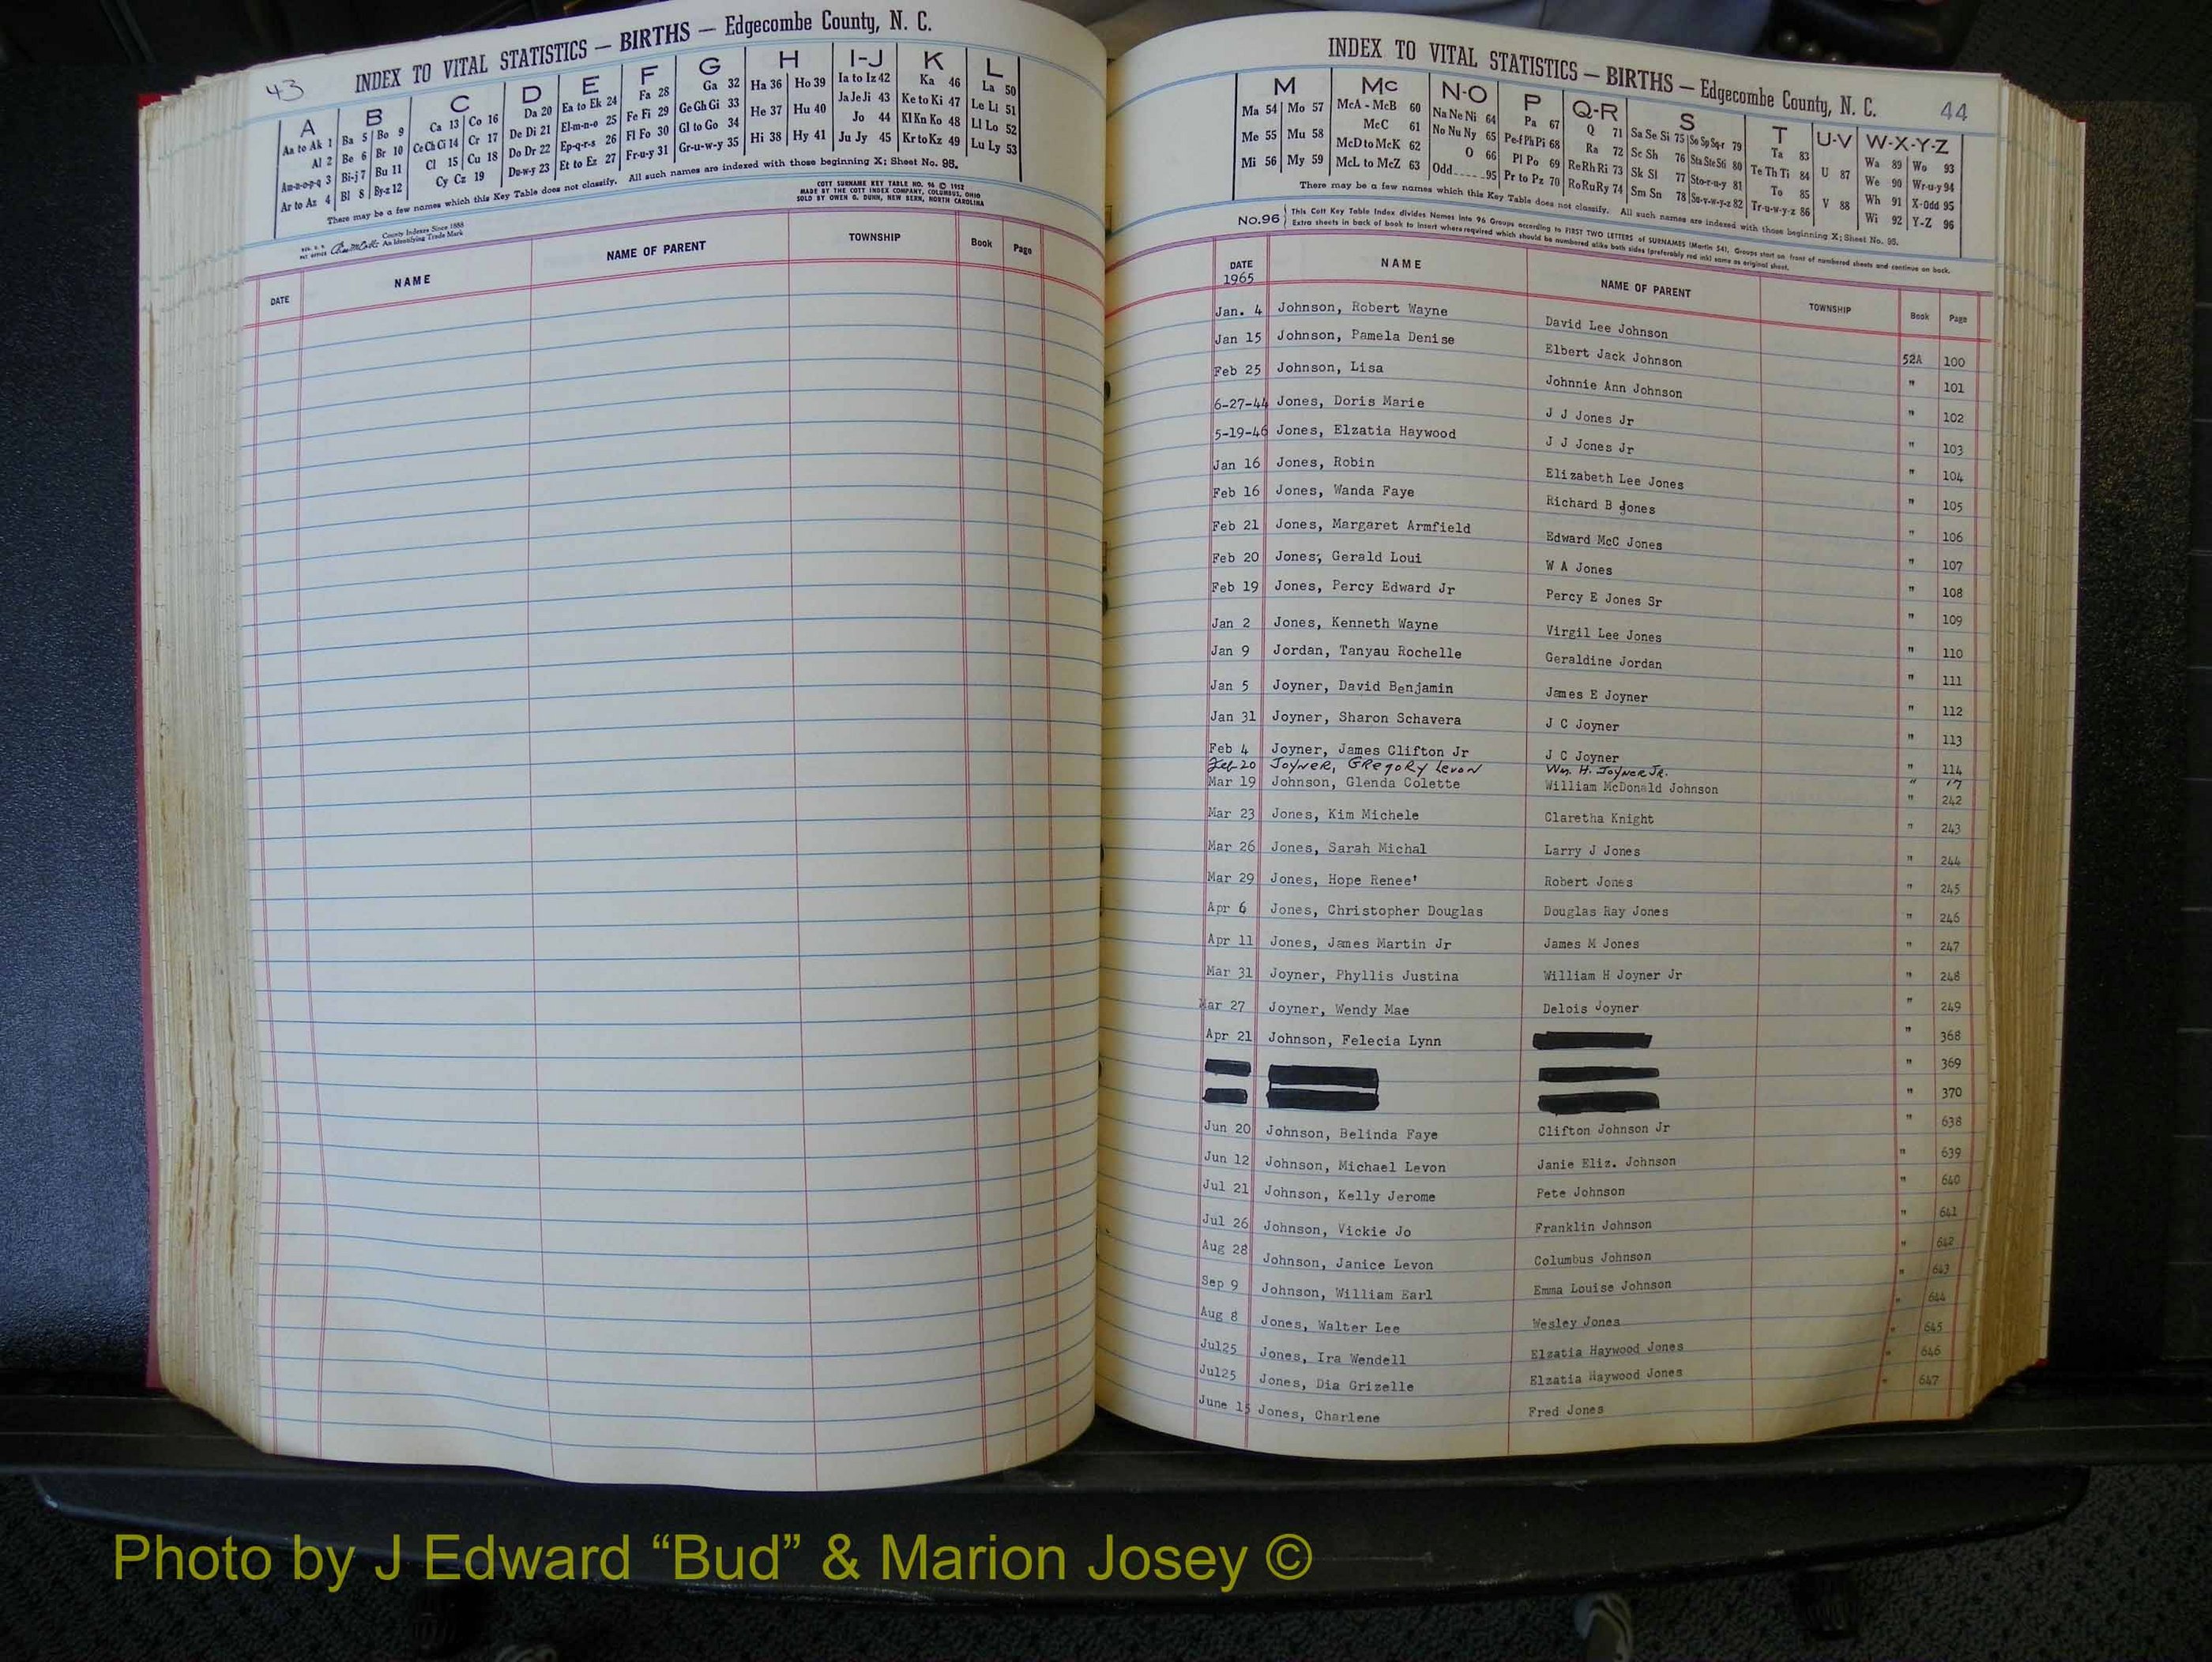 43
INDEX TO VITAL STATISTICS — BIRTHS — Edgecombe County, N. C.
A B C D E F G H I-J K L
Aa to Ak 1 Ba 5 Bo 9 Ca 13 Co 16 Da 20 Ea to Ek 24 Fa 28 Ga 32 Ha 36 Ho 39 Ia to Iz 42 Ka 46 La 50
Al 2 Be 6 Br 10 Ce Ch Ci 14 Cr 17 De Di 21 El-m-n-o 25 Fe Fi 29 Ge Gh Gi 33 He 37 Hu 40 Ja Je Ji 43 Ke to Ki 47 Le Li 51
Am-n-o-p-q 3 Bi-j 7 Bu 11 Cl 15 Cu 18 Do Dr 22 Ep-q-r-s 26 Fl Fo 30 Gl to Go 34 Hi 38 Hy 41 Jo 44 Kl Kn Ko 48 Ll Lo 52
Ar to Az 4 Bl 8 By-z 12 Cy Cz 19 Du-w-y 23 Et to Ez 27 Fr-u-y 31 Gr-u-w-y 35 Ju Jy 45 Kr to Kz 49 Lu Ly 53
There may be a few names which this Key Table does not classify. All such names are indexed with those beginning X; Sheet No. 95.
COTT SURNAME KEY TABLE NO. 96 © 1952
MADE BY THE COTT INDEX COMPANY, COLUMBUS, OHIO
SOLD BY OWEN G. DUNN, NEW BERN, NORTH CAROLINA
County Indexes Since 1888
An Identifying Trade Mark
DATE NAME NAME OF PARENT TOWNSHIP Book Page
INDEX TO VITAL STATISTICS — BIRTHS — Edgecombe County, N. C. 44
M Mc N-O P Q-R S T U-V W-X-Y-Z
Ma 54 Mo 57 McA - McB 60 Na Ne Ni 64 Pa 67 Q 71 Sa Se Si 75 So Sp Sq-r 79 Ta 83 U 87 Wa 89 Wo 93
Me 55 Mu 58 McC 61 No Nu Ny 65 Pe-f Ph Pi 68 Ra 72 Sc Sh 76 Sta Ste Sti 80 Te Th Ti 84 We 90 Wr-u-y 94
Mi 56 My 59 McD to McK 62 O 66 Pl Po 69 Re Rh Ri 73 Sk Sl 77 Sto-r-u-y 81 To 85 V 88 Wh 91 X-Odd 95
McL to McZ 63 Odd 95 Pr to Pz 70 Ro Ru Ry 74 Sm Sn 78 Su-v-w-y-z 82 Tr-u-w-y-z 86 Wi 92 Y-Z 96
There may be a few names which this Key Table does not classify. All such names are indexed with those beginning X; Sheet No. 95.
No. 96 This Cott Key Table Index divides Names into 96 Groups according to FIRST TWO LETTERS of SURNAMES (Martin 54). Groups start on front of numbered sheets and continue on back.
Extra sheets in back of book to insert where required which should be numbered alike both sides (preferably red ink) same as original sheet.
DATE NAME NAME OF PARENT TOWNSHIP Book Page
1965
Jan. 4 Johnson, Robert Wayne David Lee Johnson 52A 100
Jan 15 Johnson, Pamela Denise Elbert Jack Johnson " 101
Feb 25 Johnson, Lisa Johnnie Ann Johnson " 102
6-27-44 Jones, Doris Marie J J Jones Jr " 103
5-19-46 Jones, Elzatia Haywood J J Jones Jr " 104
Jan 16 Jones, Robin Elizabeth Lee Jones " 105
Feb 16 Jones, Wanda Faye Richard B Jones " 106
Feb 21 Jones, Margaret Armfield Edward McC Jones " 107
Feb 20 Jones, Gerald Loui W A Jones " 108
Feb 19 Jones, Percy Edward Jr Percy E Jones Sr " 109
Jan 2 Jones, Kenneth Wayne Virgil Lee Jones " 110
Jan 9 Jordan, Tanyau Rochelle Geraldine Jordan " 111
Jan 5 Joyner, David Benjamin James E Joyner " 112
Jan 31 Joyner, Sharon Schavera J C Joyner " 113
Feb 4 Joyner, James Clifton Jr J C Joyner " 114
Feb 20 Joyner, Gregory Levon Wm. H. Joyner Jr. " 17
Mar 19 Johnson, Glenda Colette William McDonald Johnson " 242
Mar 23 Jones, Kim Michele Claretha Knight " 243
Mar 26 Jones, Sarah Michal Larry J Jones " 244
Mar 29 Jones, Hope Renee' Robert Jones " 245
Apr 6 Jones, Christopher Douglas Douglas Ray Jones " 246
Apr 11 Jones, James Martin Jr James M Jones " 247
Mar 31 Joyner, Phyllis Justina William H Joyner Jr " 248
Mar 27 Joyner, Wendy Mae Delois Joyner " 249
Apr 21 Johnson, Felecia Lynn " 368
" 369
" 370
Jun 20 Johnson, Belinda Faye Clifton Johnson Jr " 638
Jun 12 Johnson, Michael Levon Janie Eliz. Johnson " 639
Jul 21 Johnson, Kelly Jerome Pete Johnson " 640
Jul 26 Johnson, Vickie Jo Franklin Johnson " 641
Aug 28 Johnson, Janice Levon Columbus Johnson " 642
Sep 9 Johnson, William Earl Emma Louise Johnson " 643
Aug 8 Jones, Walter Lee Wesley Jones " 644
Jul25 Jones, Ira Wendell Elzatia Haywood Jones " 645
Jul25 Jones, Dia Grizelle Elzatia Haywood Jones " 646
June 15 Jones, Charlene Fred Jones " 647
Photo by J Edward “Bud” & Marion Josey ©